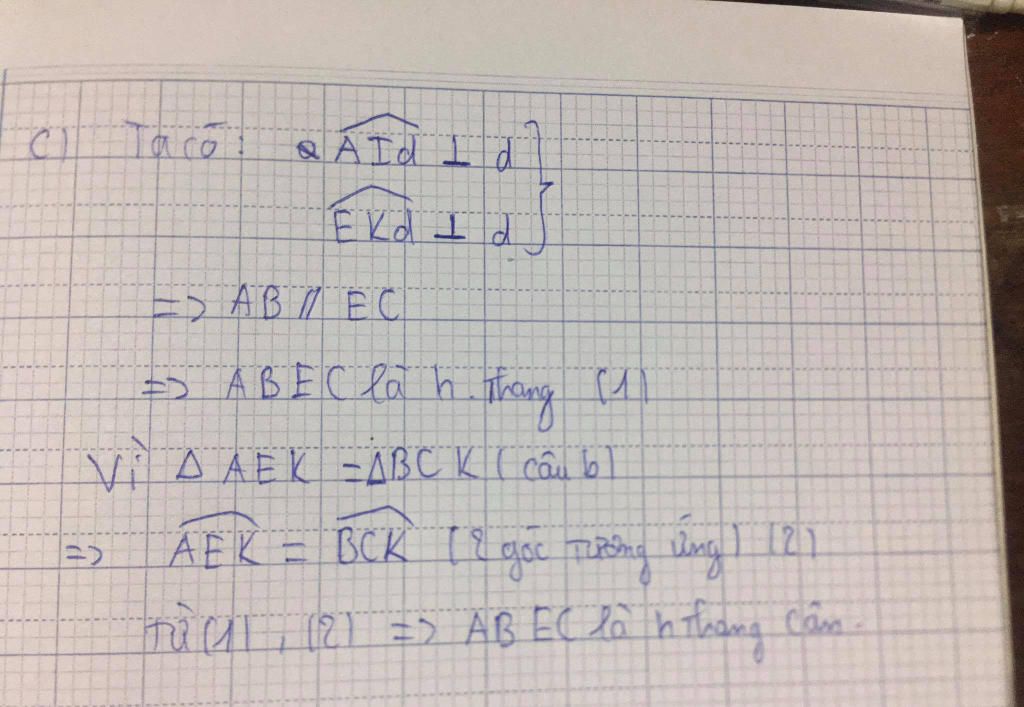 c) Ta có: AId ⊥ d }
EKd ⊥ d
=> AB // EC
=> ABEC là h.thang (1)
Vì Δ AEK = ΔBCK (câu b)
=> AEK = BCK (2 góc tương ứng) (2)
Từ (1), (2) => ABEC là h thang cân.